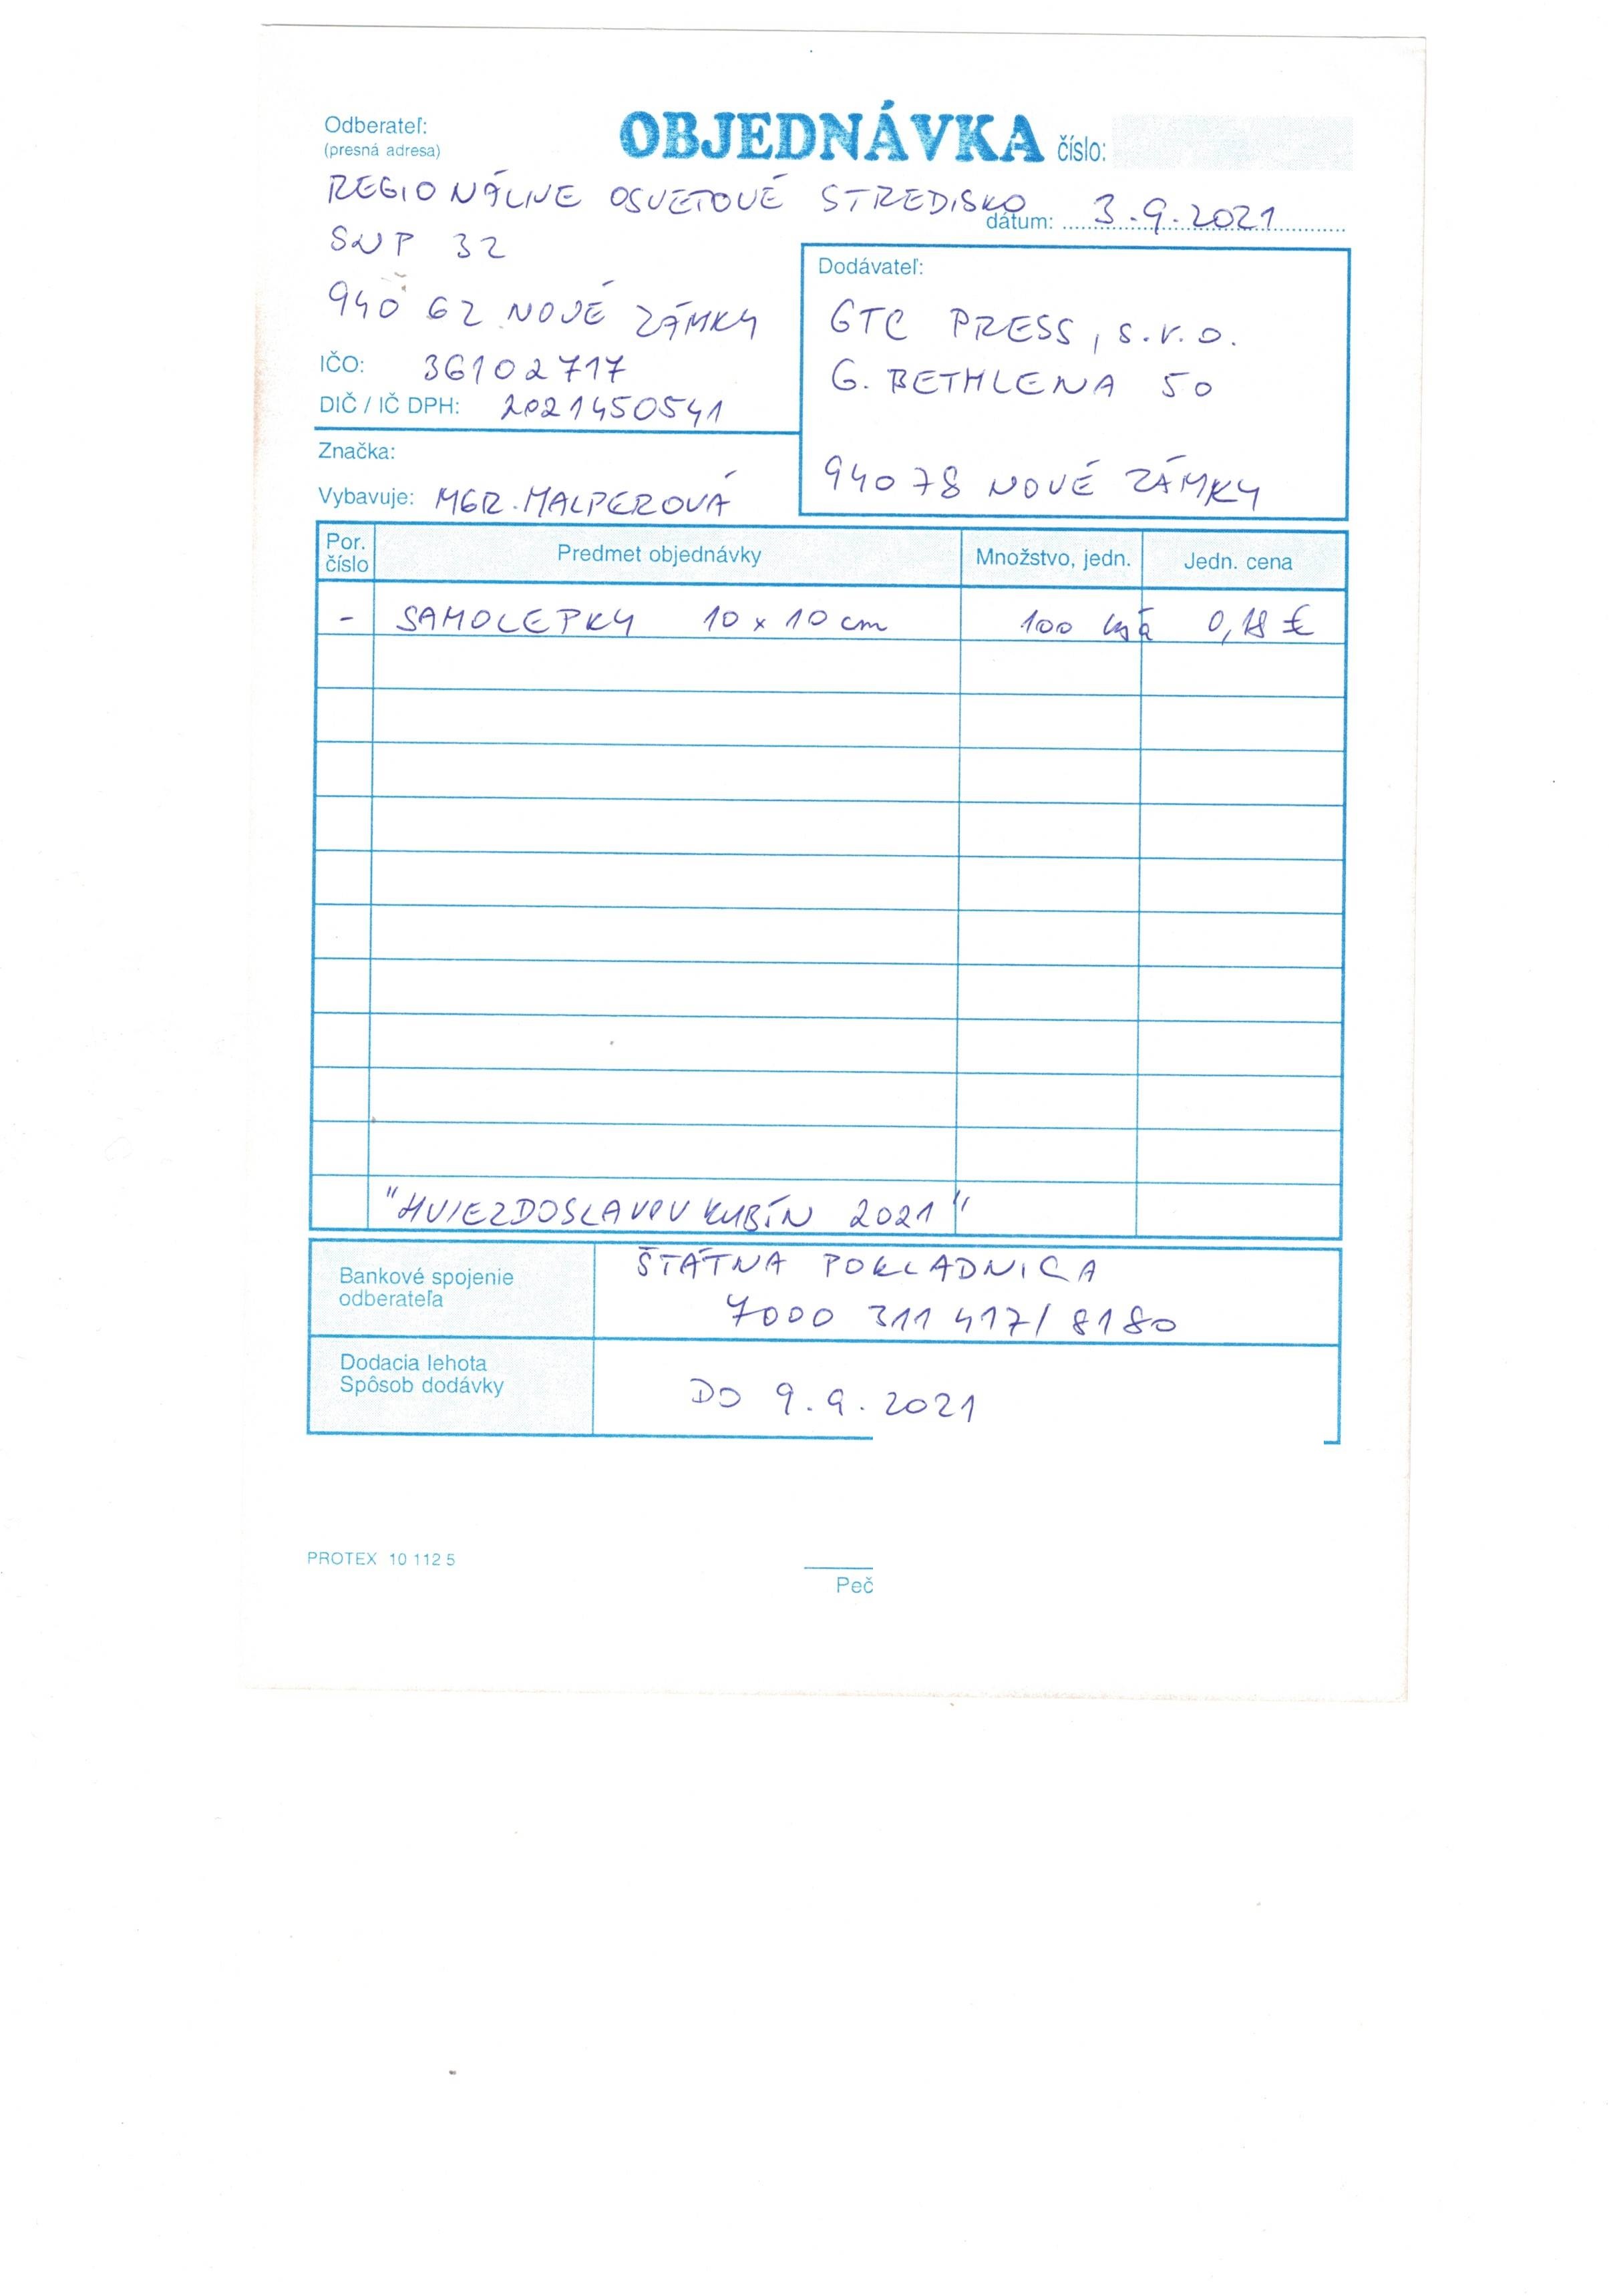 Odberateľ:
(presná adresa)
OBJEDNÁVKA číslo:
REGIONÁLNE OSVETOVÉ STREDISKO
dátum: 3.9.2021
SNP 32
940 62 NOVÉ ZÁMKY
IČO: 36102717
DIČ / IČ DPH: 2021450541
Značka:
Vybavuje: MGR. MALPEROVÁ
Dodávateľ:
GTC PRESS, s.r.o.
G. BETHLENA 50
940 78 NOVÉ ZÁMKY
Por. číslo Predmet objednávky Množstvo, jedn. Jedn. cena
- SAMOLEPKY 10 x 10 cm 100 á 0,18 €
"HVIEZDOSLAVOV KUBÍN 2021"
Bankové spojenie
odberateľa
ŠTÁTNA POKLADNICA
7000 311 417/8180
Dodacia lehota
Spôsob dodávky
DO 9.9.2021
PROTEX 10 112 5
Peč